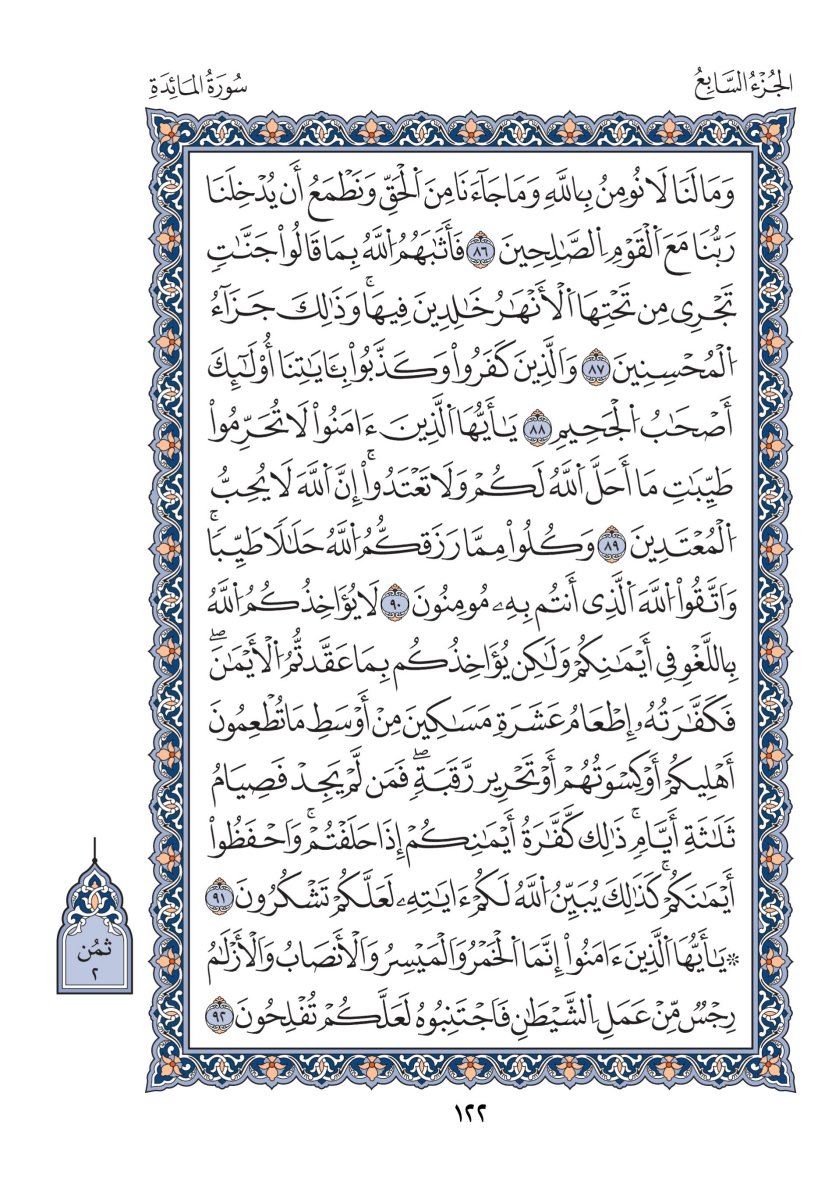 الجُزْءُ السَّابِعُ
سُورَةُ المَائِدَةِ
وَمَا لَنَا لَا نُومِنُ بِاللَّهِ وَمَا جَآءَنَا مِنَ اَ۬لْحَقِّ وَنَطْمَعُ أَن يُدْخِلَنَا
رَبُّنَا مَعَ اَ۬لْقَوْمِ اِ۬لصَّٰلِحِينَ ٨٦ فَأَثَٰبَهُمُ اُ۬للَّهُ بِمَا قَالُواْ جَنَّٰتٖ
تَجْرِي مِن تَحْتِهَا اَ۬لْأَنْهَٰرُ خَٰلِدِينَ فِيهَاۚ وَذَٰلِكَ جَزَآءُ
اُ۬لْمُحْسِنِينَ ٨٧ وَالَّذِينَ كَفَرُواْ وَكَذَّبُواْ بِـَٔايَٰتِنَا أُوْلَٰٓئِكَ
أَصْحَٰبُ اُ۬لْجَحِيمِ ٨٨ يَٰٓأَيُّهَا اَ۬لَّذِينَ ءَامَنُواْ لَا تُحَرِّمُواْ
طَيِّبَٰتِ مَا أَحَلَّ اَ۬للَّهُ لَكُمْ وَلَا تَعْتَدُواْۚ إِنَّ اَ۬للَّهَ لَا يُحِبُّ
اُ۬لْمُعْتَدِينَ ٨٩ وَكُلُواْ مِمَّا رَزَقكُّمُ اُ۬للَّهُ حَلَٰلاٗ طَيِّباٗۚ
وَاتَّقُواْ اُ۬للَّهَ اَ۬لَّذِي أَنتُم بِهِۦ مُومِنُونَ ٩٠ لَا يُؤَاخِذُكُمُ اُ۬للَّهُ
بِاللَّغْوِ فِي أَيْمَٰنِكُمْ وَلَٰكِن يُؤَاخِذُكُم بِمَا عَقَّدتُّمُ اُ۬لْأَيْمَٰنَۖ
فَكَفَّٰرَتُهُۥ إِطْعَامُ عَشَرَةِ مَسَٰكِينَ مِنْ أَوْسَطِ مَا تُطْعِمُونَ
أَهْلِيكُمْ أَوْ كِسْوَتُهُمْ أَوْ تَحْرِير رَّقَبَةٖۖ فَمَن لَّمْ يَجِدْ فَصِيَامُ
ثَلَٰثَةِ أَيَّامٖۚ ذَٰلِك كَّفَّٰرَةُ أَيْمَٰنِكُمْ إِذَا حَلَفْتُمْۚ وَاحْفَظُواْ
أَيْمَٰنَكُمْۚ كَذَٰلِكَ يُبَيِّنُ اُ۬للَّهُ لَكُمْ ءَايَٰتِهِۦ لَعَلَّكُمْ تَشْكُرُونَ ٩١
۞ يَٰٓأَيُّهَا اَ۬لَّذِينَ ءَامَنُواْ إِنَّمَا اَ۬لْخَمْرُ وَالْمَيْسِرُ وَالْأَنصَابُ وَالْأَزْلَٰمُ
رِجْسٌ مِّنْ عَمَلِ اِ۬لشَّيْطَٰنِ فَاجْتَنِبُوهُ لَعَلَّكُمْ تُفْلِحُونَ ٩٢
ثمُن
٢
١٢٢